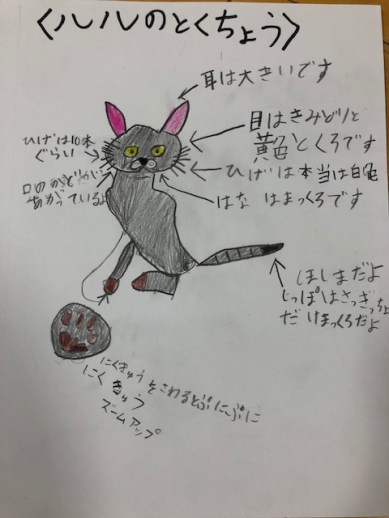 〈ルルのとくちょう〉
耳は大きいです
目はきみどりと
黄色とくろです
ひげは10本
ぐらい
ひげは本当は白色
口の
あがっているよ
はなはまっくろです
ほしまだよ
しっぽはさっきっちょ
だけまっくろだよ
にくきゅうをさわるとぷにぷに
にくきゅう
ズームアップ